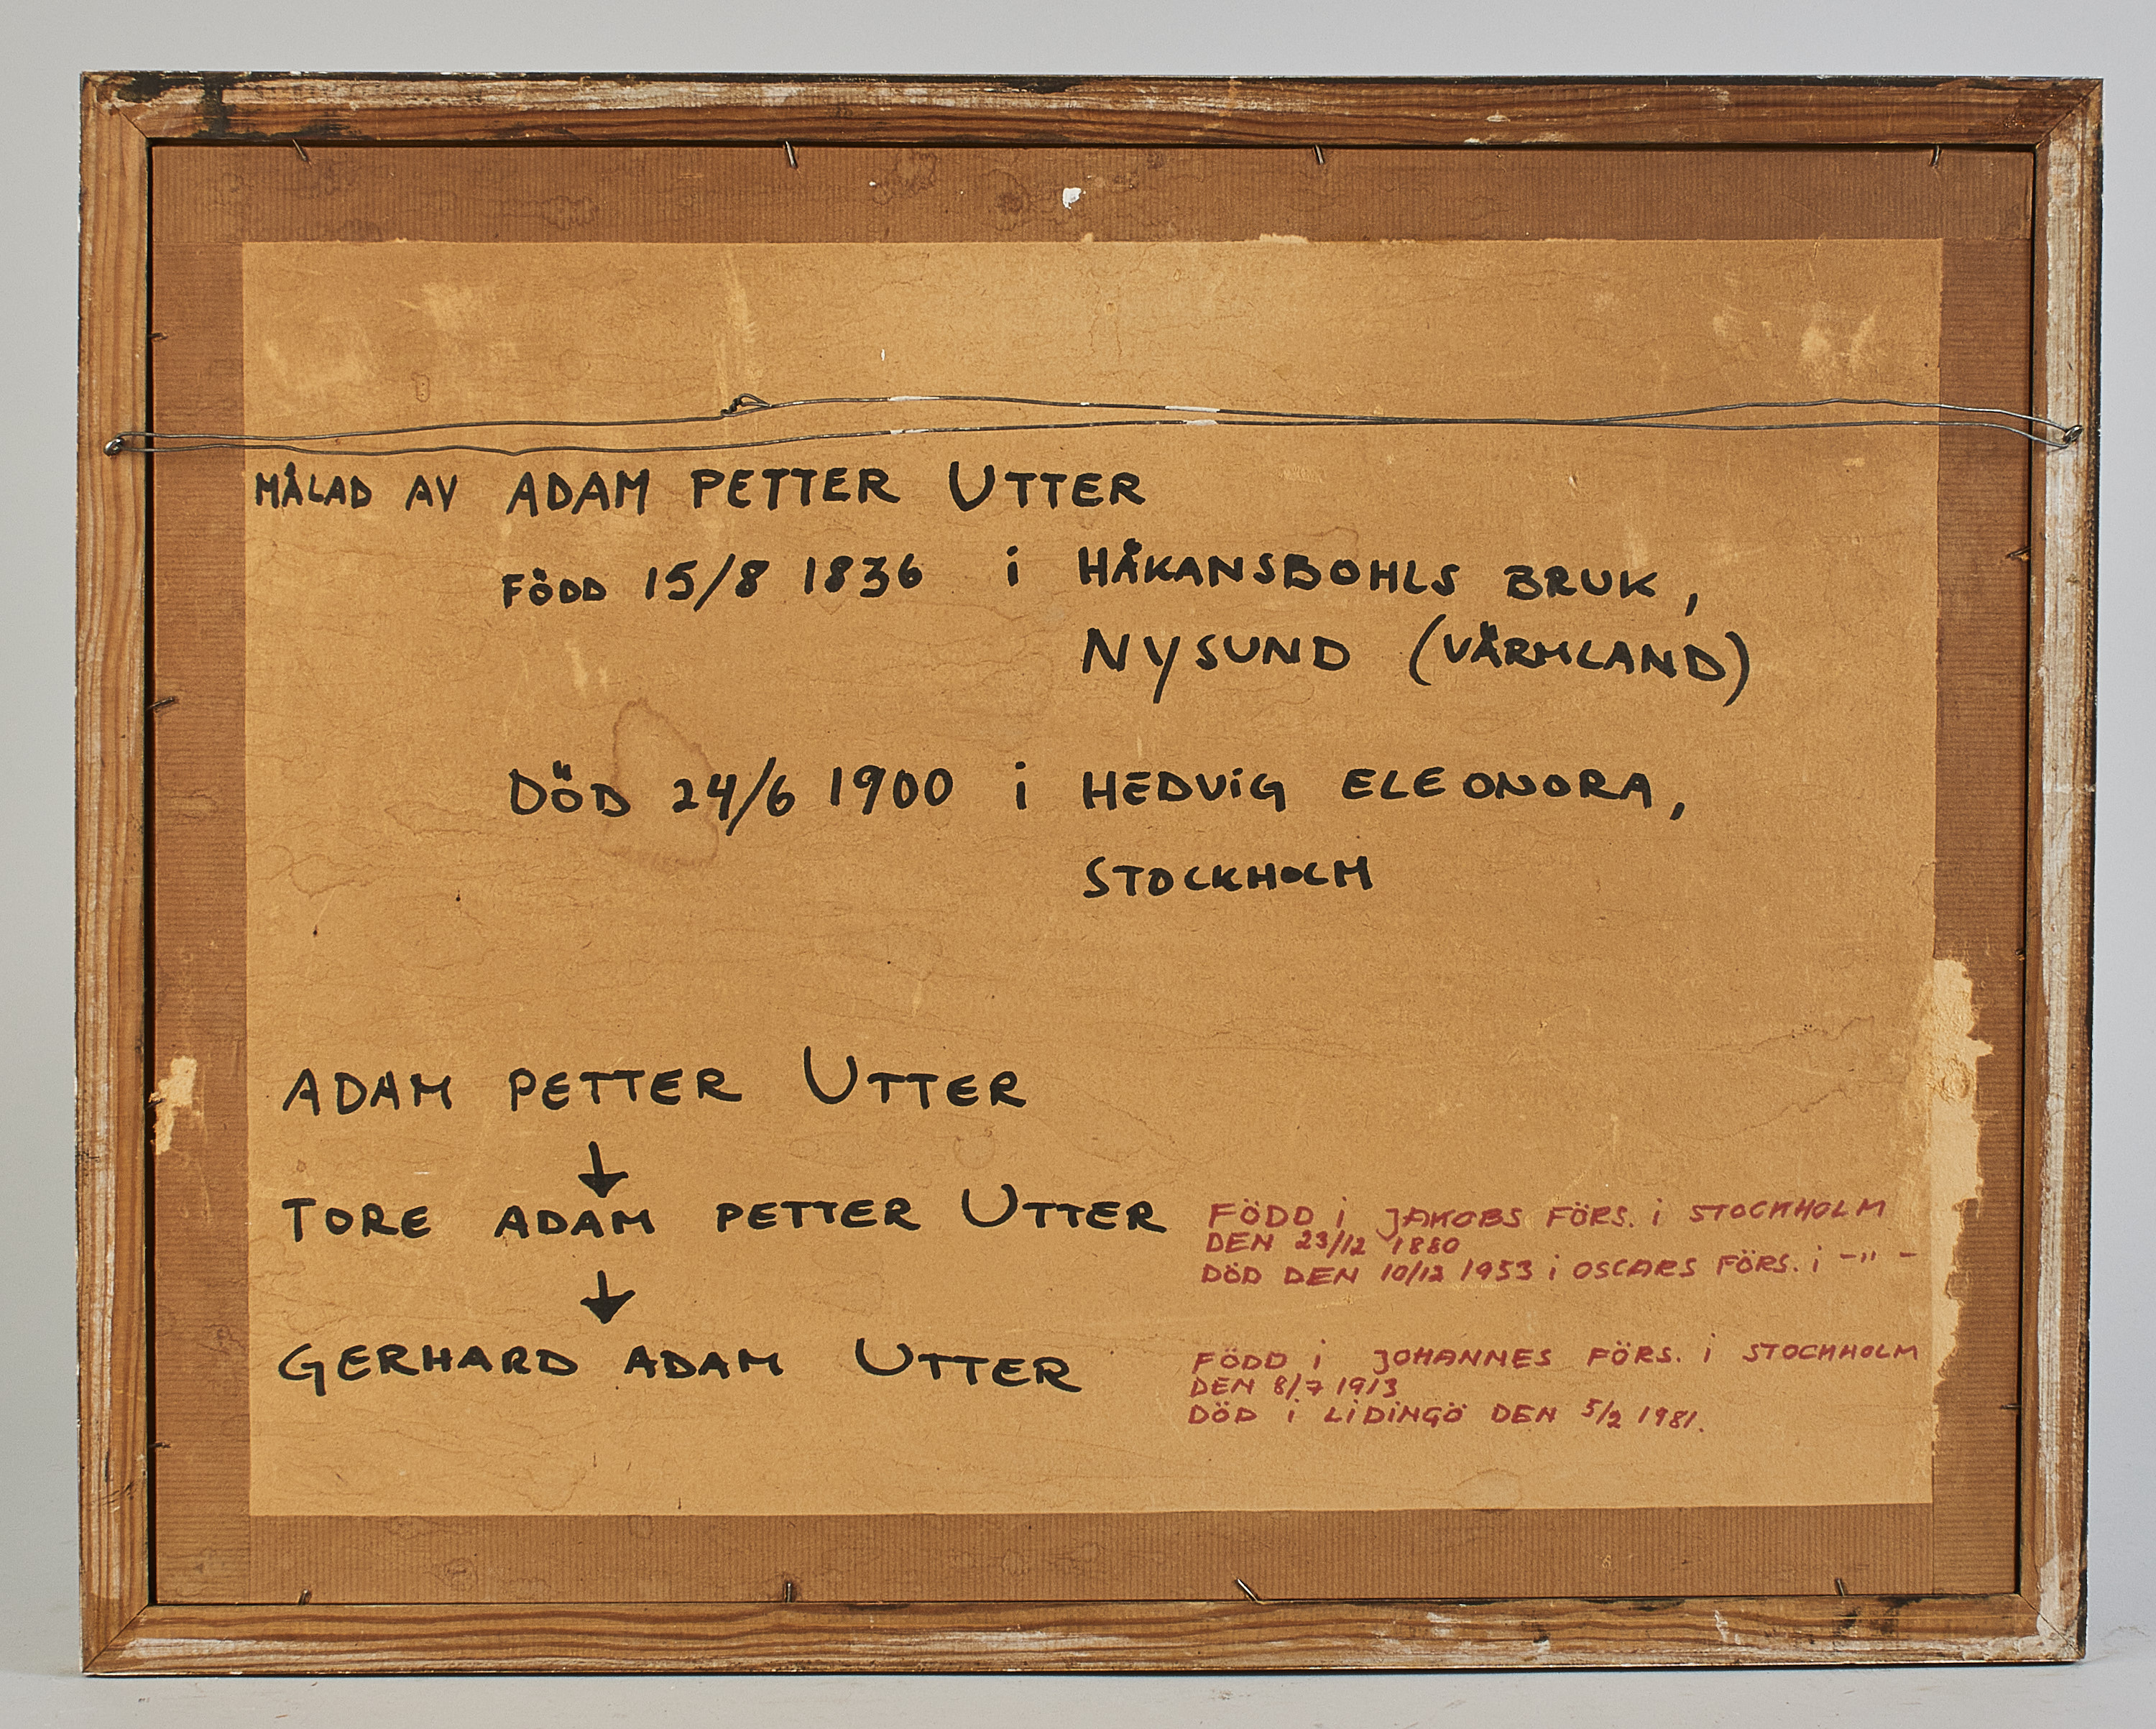 MÅLAD AV ADAM PETTER UTTER
FÖDD 15/8 1836 i HÅKANSBOHLS BRUK,
NYSUND (VÄRMLAND)
DÖD 24/6 1900 i HEDViG ELEONORA,
STOCKHOLM
ADAM PETTER UTTER
↓
TORE ADAM PETTER UTTER
FÖDD i JAKOBS FÖRS. i STOCKHOLM
DEN 23/12 1880
DÖD DEN 10/12 1953 i OSCARS FÖRS. i -"-
↓
GERHARD ADAM UTTER
FÖDD i JOHANNES FÖRS. i STOCKHOLM
DEN 8/7 1913
DÖD i LiDiNGÖ DEN 5/2 1981.